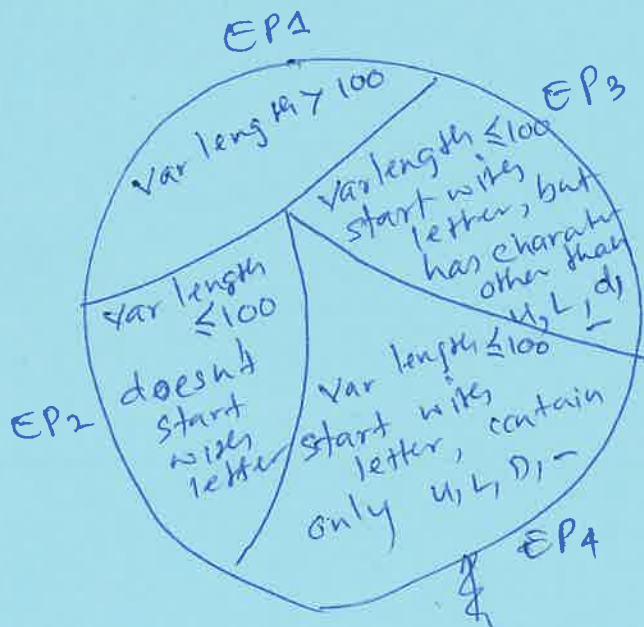 EP1
var length > 100
EP3
var length ≤100
start with
letter, but
has charact
other than
U, L, d,
_
var length
≤100
doesn't
start
with
letter
EP2
var length ≤100
start with
letter, contain
only U, L, D, -
EP4